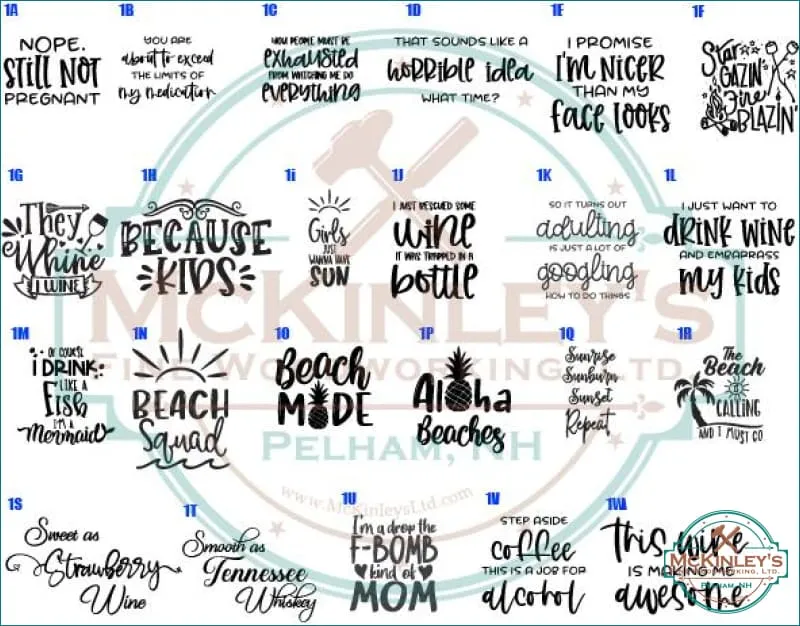 1A
NOPE.
STILL NOT
PREGNANT
1B
YOU ARE
about to exceed
THE LIMITS OF
my medication
1C
YOU PEOPLE MUST BE
exhausted
FROM WATCHING ME DO
everything
1D
THAT SOUNDS LIKE A
HORRIBLE idea
WHAT TIME?
1E
I PROMISE
I'M NICER
THAN MY
face looks
1F
Star
GAZIN'
Fire
BLAZIN'
1G
They
Whine
I WINE
1H
BECAUSE
KIDS
1i
Girls
JUST
WANNA HAVE
SUN
1J
I JUST RESCUED SOME
wine
IT WAS TRAPPED IN A
bottle
1K
SO IT TURNS OUT
adulting
IS JUST A LOT OF
googling
HOW TO DO THINGS
1L
I JUST WANT TO
DRINK WINE
AND EMBARRASS
my kids
1M
OF COURSE
I DRINK
LIKE A
Fish
I'M A
Mermaid
1N
BEACH
Squad
1O
Beach
MODE
1P
Aloha
Beaches
1Q
Sunrise
Sunburn
Sunset
Repeat
1R
The
Beach
IS
CALLING
AND I MUST GO
1S
Sweet as
Strawberry
Wine
1T
Smooth as
Tennessee
Whiskey
1U
I'm a drop the
F-BOMB
kind of
MOM
1V
STEP ASIDE
coffee
THIS IS A JOB FOR
alcohol
1WA
This wine
IS MAKING ME
awesome
McKinley's
Fine Woodworking, Ltd.
Pelham, NH
www.McKinleysLtd.com
McKinley's
Woodworking, Ltd.
Pelham, NH